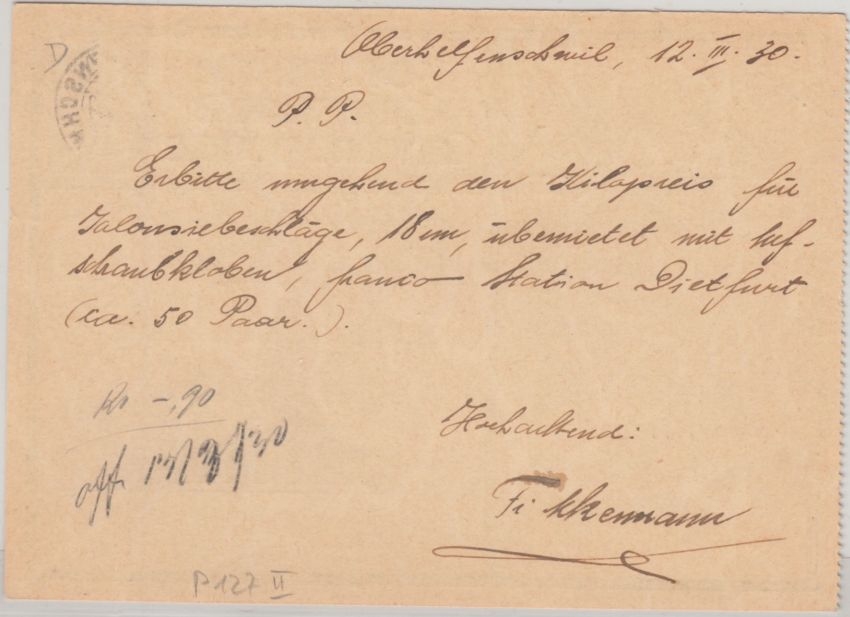 D
Oberhelfenschwil, 12. III. 30.
P. P.
Erbitte umgehend den Kilopreis für
Jalousiebeschläge, 18 cm, übernietet mit Auf-
schraubkloben, franco Station Dietfurt
(ca. 50 Paar.).
-,90
off. 13/3/30
Hochachtend:
P127 II